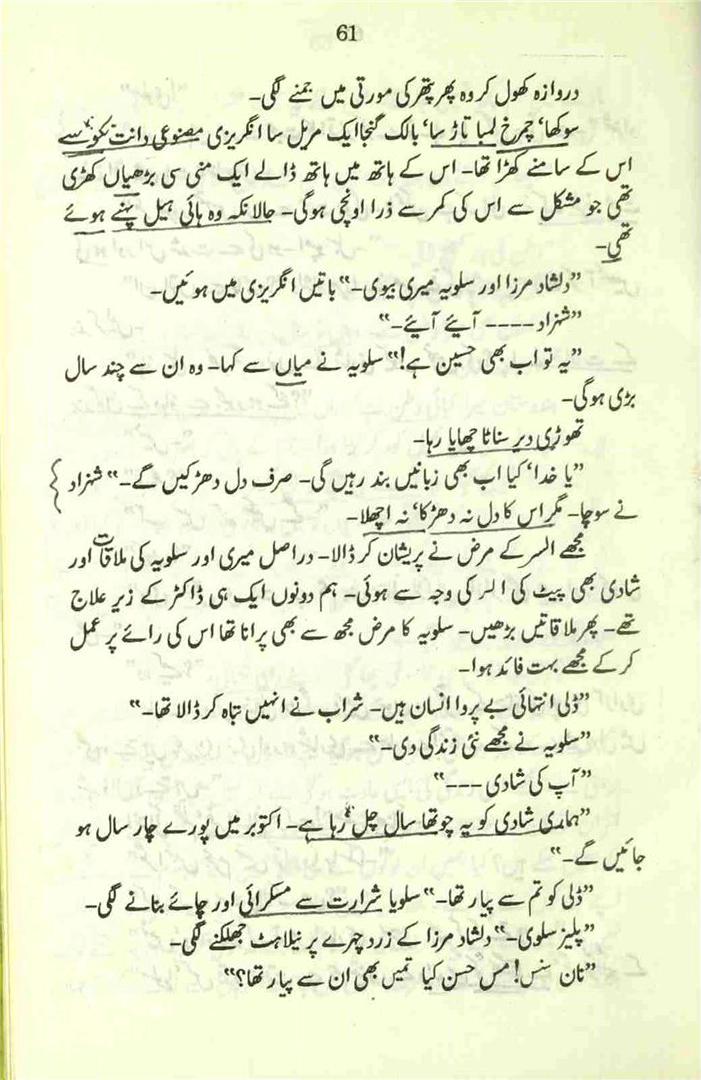 61
دروازہ کھول کر وہ پھر پتھر کی مورتی میں جمنے لگی۔
سوکھا، چمرخ لمبا تاڑ سا، بالک گنجا ایک مریل سا انگریزی مصنوعی دانت نکوسے
اس کے سامنے کھڑا تھا۔ اس کے ہاتھ میں ہاتھ ڈالے ایک منی سی بڑھیاں کھڑی
تھی جو مشکل سے اس کی کمر سے ذرا اونچی ہوگی۔ حالانکہ وہ ہائی ہیل پہنے ہوئے
تھی۔
”دلشاد مرزا اور سلویہ میری بیوی۔“ باتیں انگریزی میں ہوئیں۔
”شہزاد ---- آیئے آیئے۔“
”یہ تو اب بھی حسین ہے!“ سلویہ نے میاں سے کہا۔ وہ ان سے چند سال
بڑی ہوگی۔
تھوڑی دیر سناٹا چھایا رہا۔
”یا خدا، کیا اب بھی زبانیں بند رہیں گی۔ صرف دل دھڑکیں گے۔“ شہزاد
نے سوچا۔ مگر اس کا دل نہ دھڑکا، نہ اچھلا۔
مجھے السر کے مرض نے پریشان کر ڈالا۔ دراصل میری اور سلویہ کی ملاقات اور
شادی بھی پیٹ کی السر کی وجہ سے ہوئی۔ ہم دونوں ایک ہی ڈاکٹر کے زیر علاج
تھے۔ پھر ملاقاتیں بڑھیں۔ سلویہ کا مرض مجھ سے بھی پرانا تھا اس کی رائے پر عمل
کر کے مجھے بہت فائد ہوا۔
”ڈلی انتہائی بے پروا انسان ہیں۔ شراب نے انہیں تباہ کر ڈالا تھا۔“
”سلویہ نے مجھے نئی زندگی دی۔“
”آپ کی شادی ---“
”ہماری شادی کو یہ چوتھا سال چل رہا ہے۔ اکتوبر میں پورے چار سال ہو
جائیں گے۔“
”ڈلی کو تم سے پیار تھا۔“ سلویا شرارت سے مسکرائی اور چائے بنانے لگی۔
”پلیز سلوی۔“ دلشاد مرزا کے زرد چہرے پر نیلاہٹ جھلکنے لگی۔
”نان سنس! مس حسن کیا تمیں بھی ان سے پیار تھا؟“